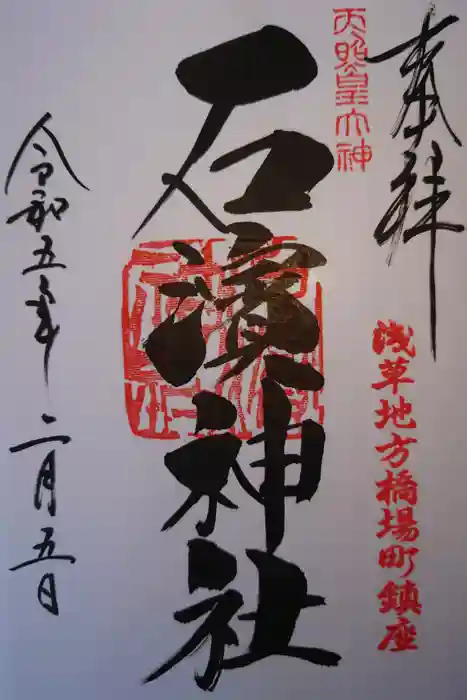 奉拝
浅草地方橋場町鎮座
天照皇大神
石濱神社
令和五年
二月五日